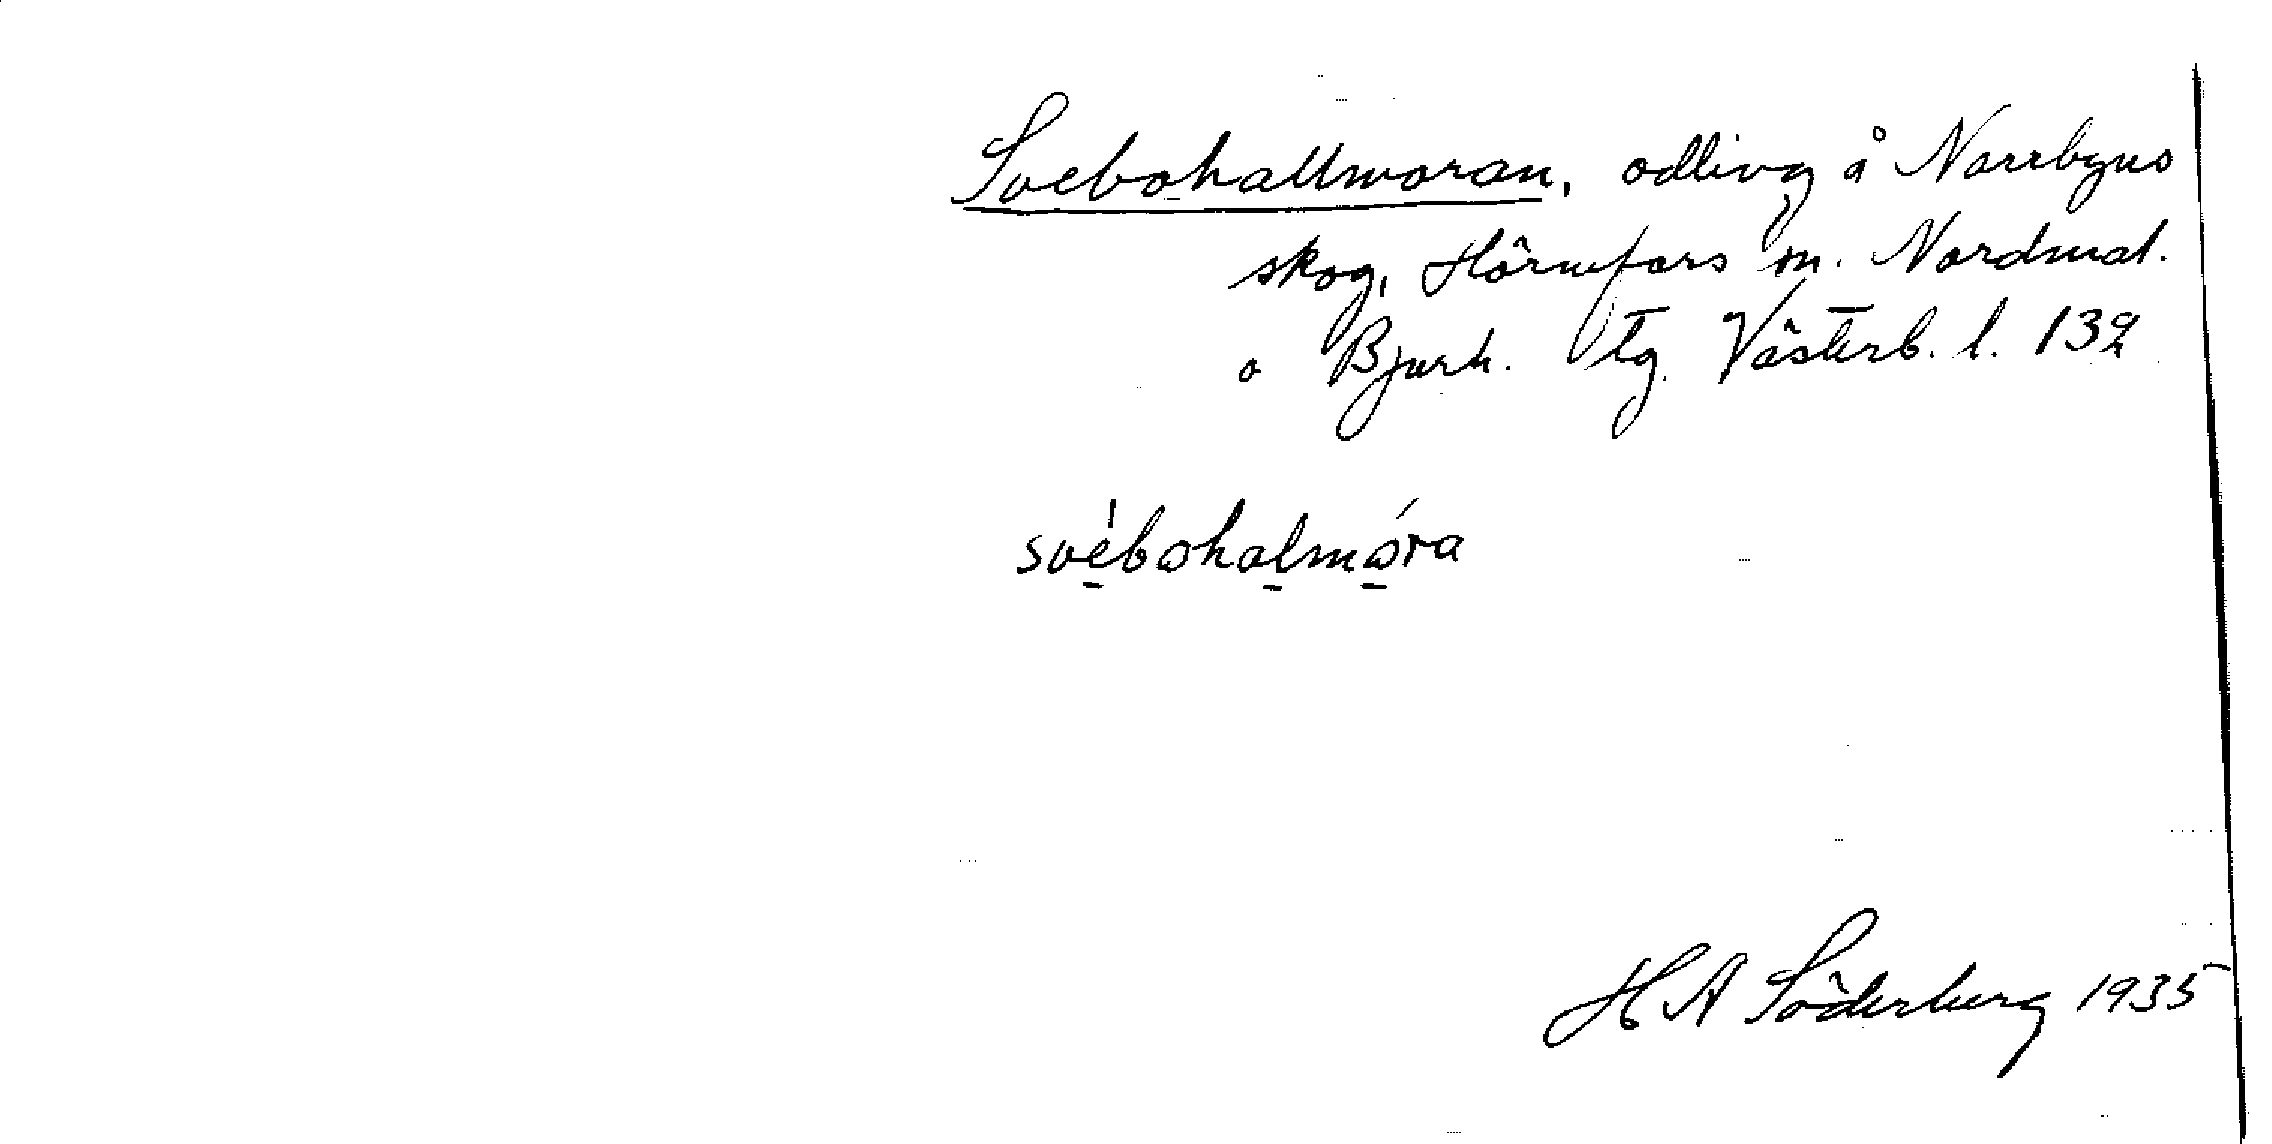 Svebohallmoran, odling å Norrbyns
skog, Hörnefors sn. Nordmal.
o Bjurh. tg. Västerb. l. 132
svèbωhalmὼra
H A Söderberg 1935